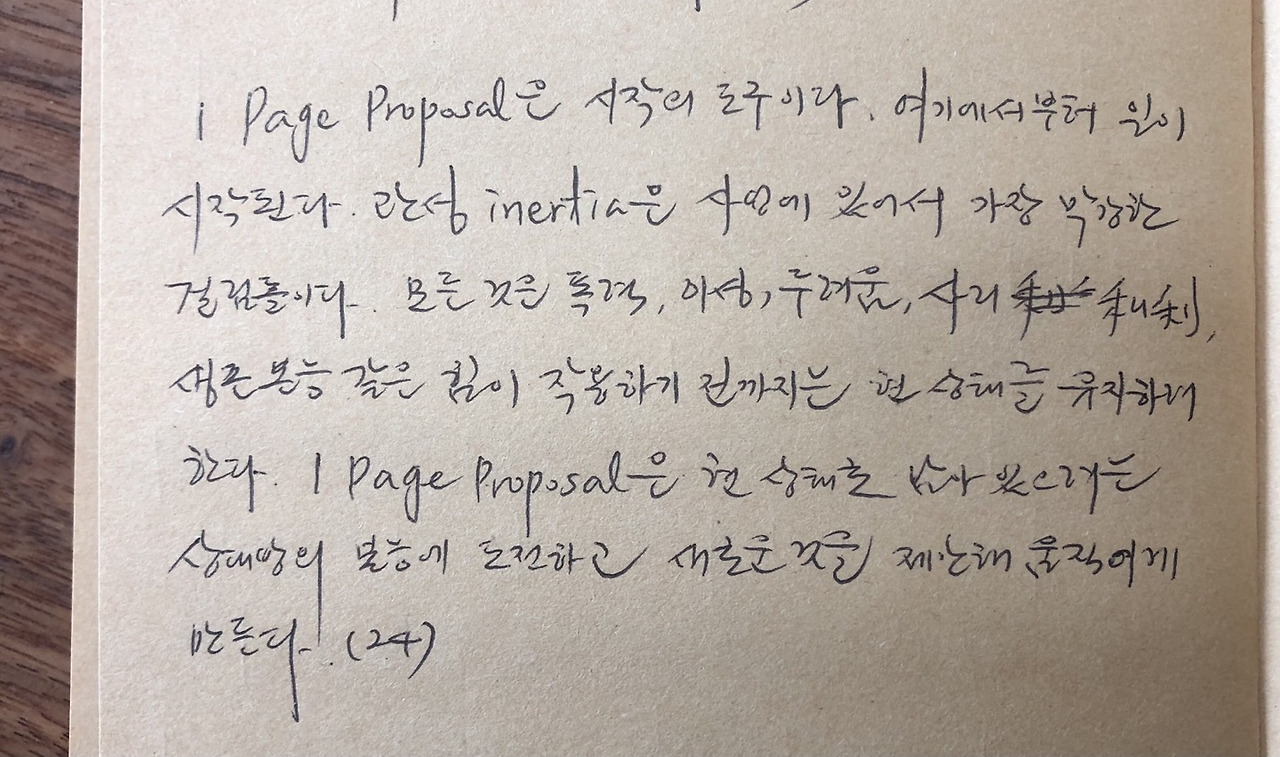 1 Page Proposal은 시작의 도구이다. 여기에서부터 일이
시작된다. 관성 inertia은 사업에 있어서 가장 막강한
걸림돌이다. 모든 것은 폭력, 이성, 두려움, 사리 私利,
생존본능 같은 힘이 작용하기 전까지는 현 상태를 유지하려
한다. 1 Page Proposal은 현 상태로 남아 있으려는
상대방의 본능에 도전하고 새로운 것을 제안해 움직이게
만든다. (24)